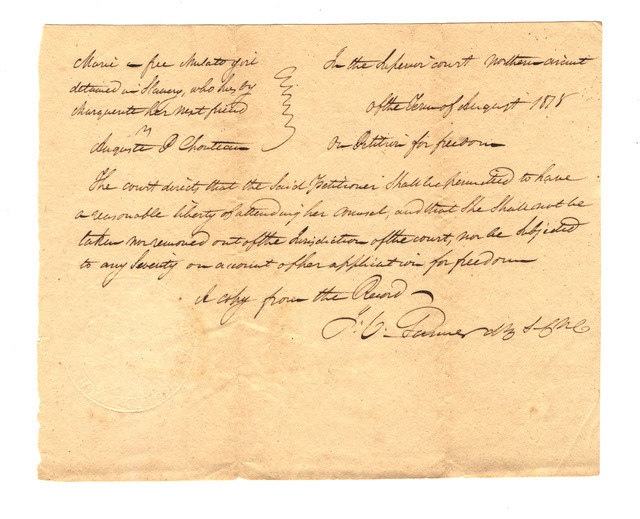 Marie a free Mulato girl
detained in Slavery, who sues by
Marguerite her next friend
vs
Auguste P Chouteau
In the Superior court Northern circuit
of the Term of August 1818
On Petition for freedom
The court directs that the Said Petitioner Shall be permitted to have
a reasonable liberty of attending her counsel, and that She Shall not be
taken nor removed out of the Jurisdiction of the court, nor be Subjected
to any Severity on account of her application for freedom
A Copy from the Record